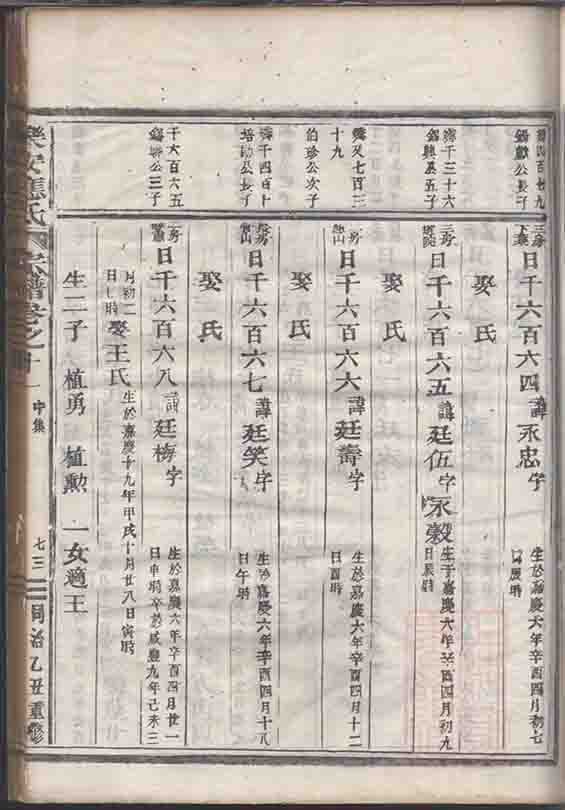 濟四百廿九
公長子
三房
下葉
日千六百六四諱永忠字
生於嘉慶六年辛酉四月初七
日辰時
娶氏
濟千三十六
公五子
三房
日千六百六五諱廷伍字永穀
生于嘉慶六年辛酉四月初九
日辰時
娶氏
濟又七百三
十九
伯珍公次子
房
山
日千六百六六諱廷壽字
生於嘉慶六年辛酉四月十二
日酉時
娶氏
濟千四百十
培公長子
房
山
日千六百六七諱廷笑字
生於嘉慶六年辛酉四月十八
日午時
娶氏
千六百六五
公三子
房
日千六百六八諱廷梅字
生於嘉慶六年辛酉四月廿一
日申時卒於咸豐九年己未三
月初二
日時娶王氏生於嘉慶十九年甲戌十月廿八日寅時
生二子 植勇 植勲 一女適王
樂安應氏宗譜卷之十一 中集 七三 同治乙丑重修